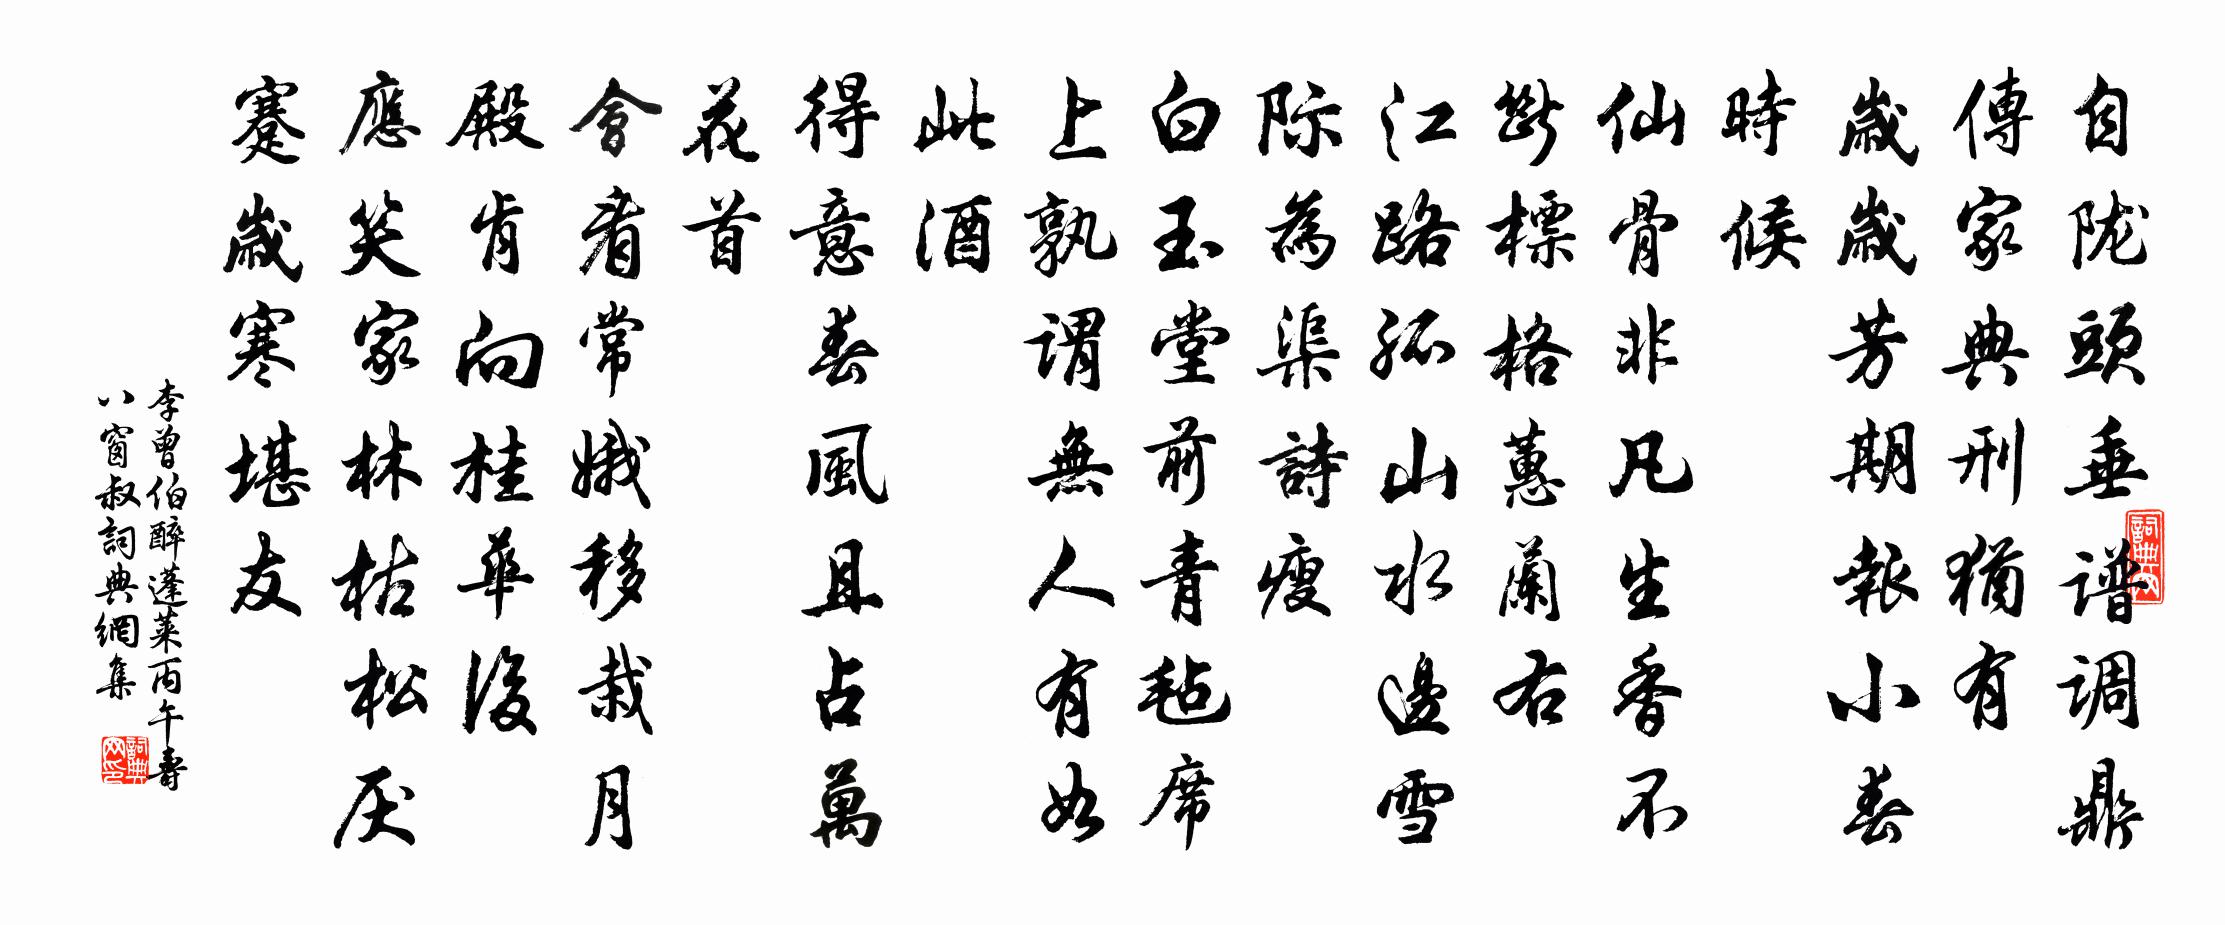 自陇頭垂谱调鼎
傳家典刑猶有
歲歲芳期報小春
時候
仙骨非凡生香不
斷標格蕙蘭右
江路孤山水邊雪
际為渠詩瘦
白玉堂前青毡席
上孰謂無人有如
此酒
得意春風且占萬
花首
會看常娥移栽月
殿肯向桂華後
應笑家林枯松厌
蹇歲寒堪友
李曾伯醉蓬莱丙午壽
八窗叔詞典網集
詞典网
詞典网印